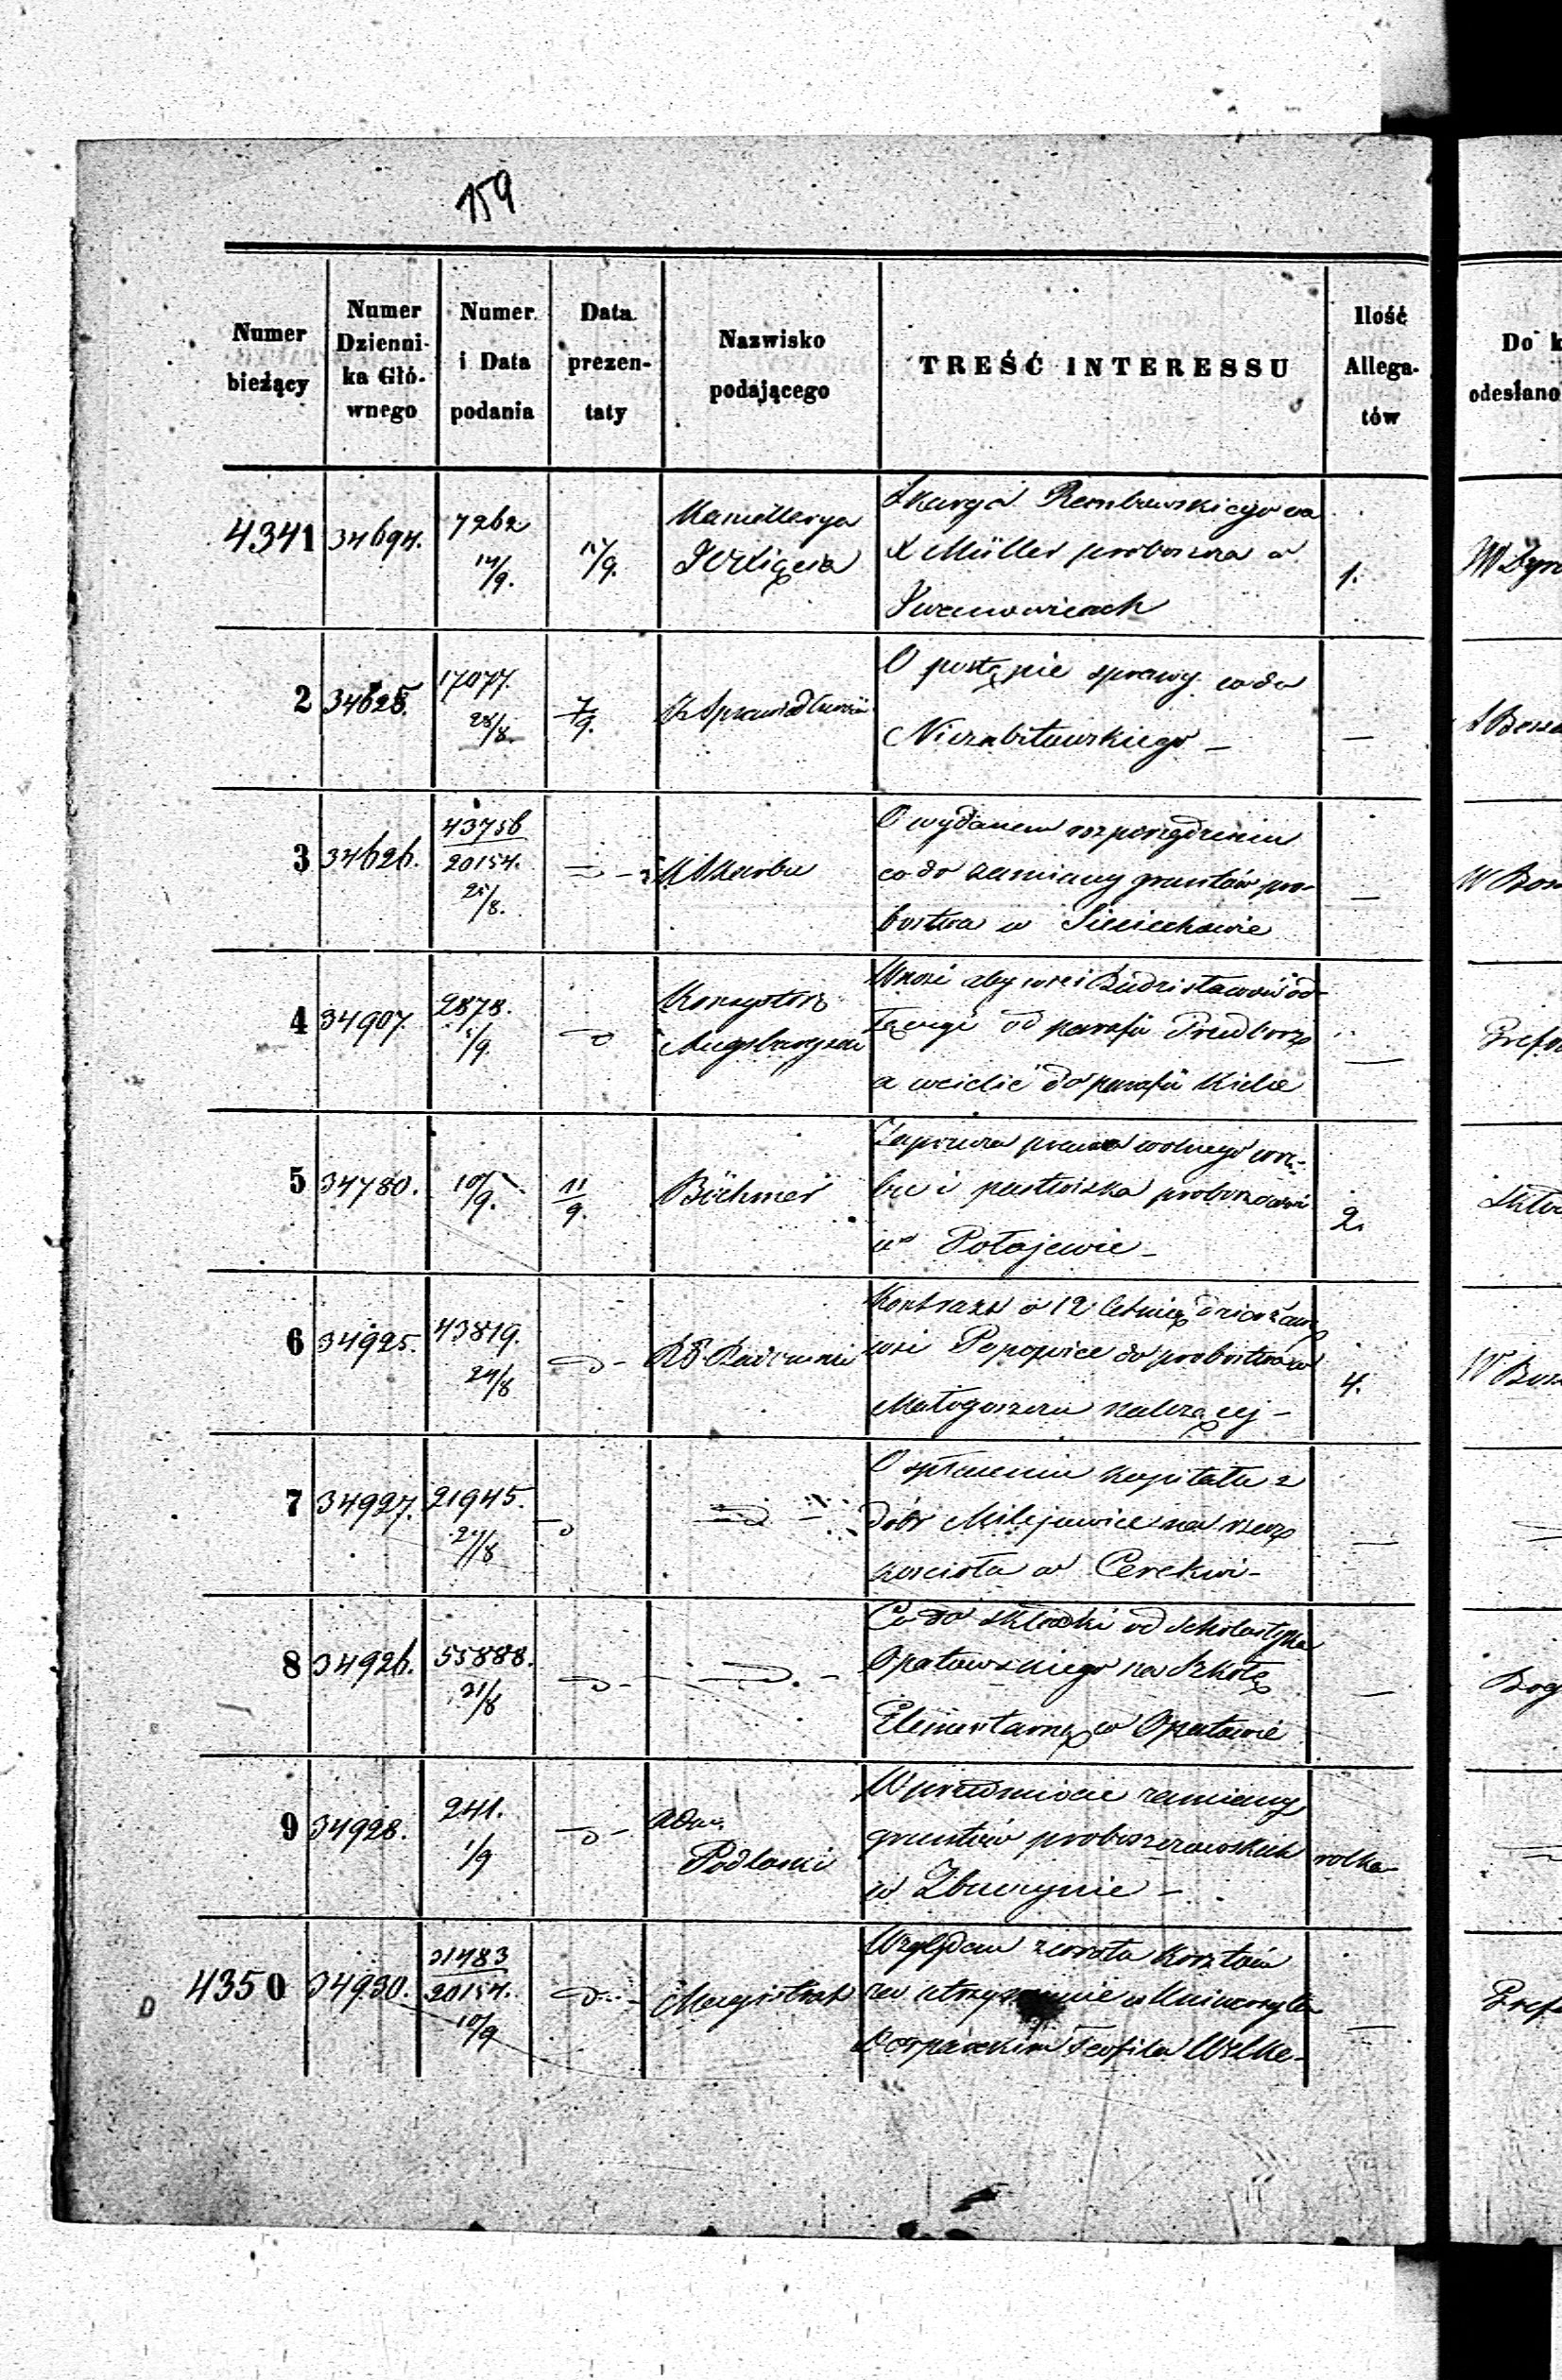 159
Numer bieżący
Numer Dzienni-ka Głó-wnego
Numer i Data podania
Data prezen-taty
Nazwisko podającego
TREŚĆ INTERESSU
Ilość Allega-tów
Do k
odesłano
4341 34694. 7262 14/9. 14/9. Kancellarya Skarga Rembowskiego na
JO Xięcia X Müller proboszcza w 1.
Iwanowicach
2 34625. 17077. 28/8. 7/9. K Sprawiedliwości O postępie sprawy co do
Niezabitowskiego —
3 34626. 43756 20154. 25/8. K Skarbu O wydanem rozporządzeniu
co do zamiany gruntów pro-
bostwa w Sieciechowie —
4 34907. 2878. 5/9. Konsystorz Wnosi aby wieś Budzisławów od-
Augsburgski łączyć od parafii Przedborz
a wcielić do parafii Kielce —
5 34780. 10/9. 11/9. Böhmer Zaprzecza prawa wolnego wrę-
bu i pastwiska proboszczowi 2.
w Połajewie —
6 34925. 43819. 24/8 RG Radomski Kontrakt o 12 letnię dzierżawę
wsi Popowice do probostwa w 4.
Małogoszczu należącej —
7 34927. 21945. 27/8 O spłaceniu kapitału z
dóbr Milejowice na rzecz
kościoła w Cerekwi —
8 34926. 55888. 31/8 Co do składki od Scholastyka
Opatowskiego na Szkołę
Elementarną w Opatowie —
9 34928. 241. 1/9 Adm. W przedmiocie zamiany
Podlaski gruntów proboszczowskich rolka
w Zbuczynie —
4350 34930. 31483 20154. 10/9 Magistrat Względem zwrotu kosztów
za utrzymanie w Uniwersytecie
Dorpackim Teofila Wilke —